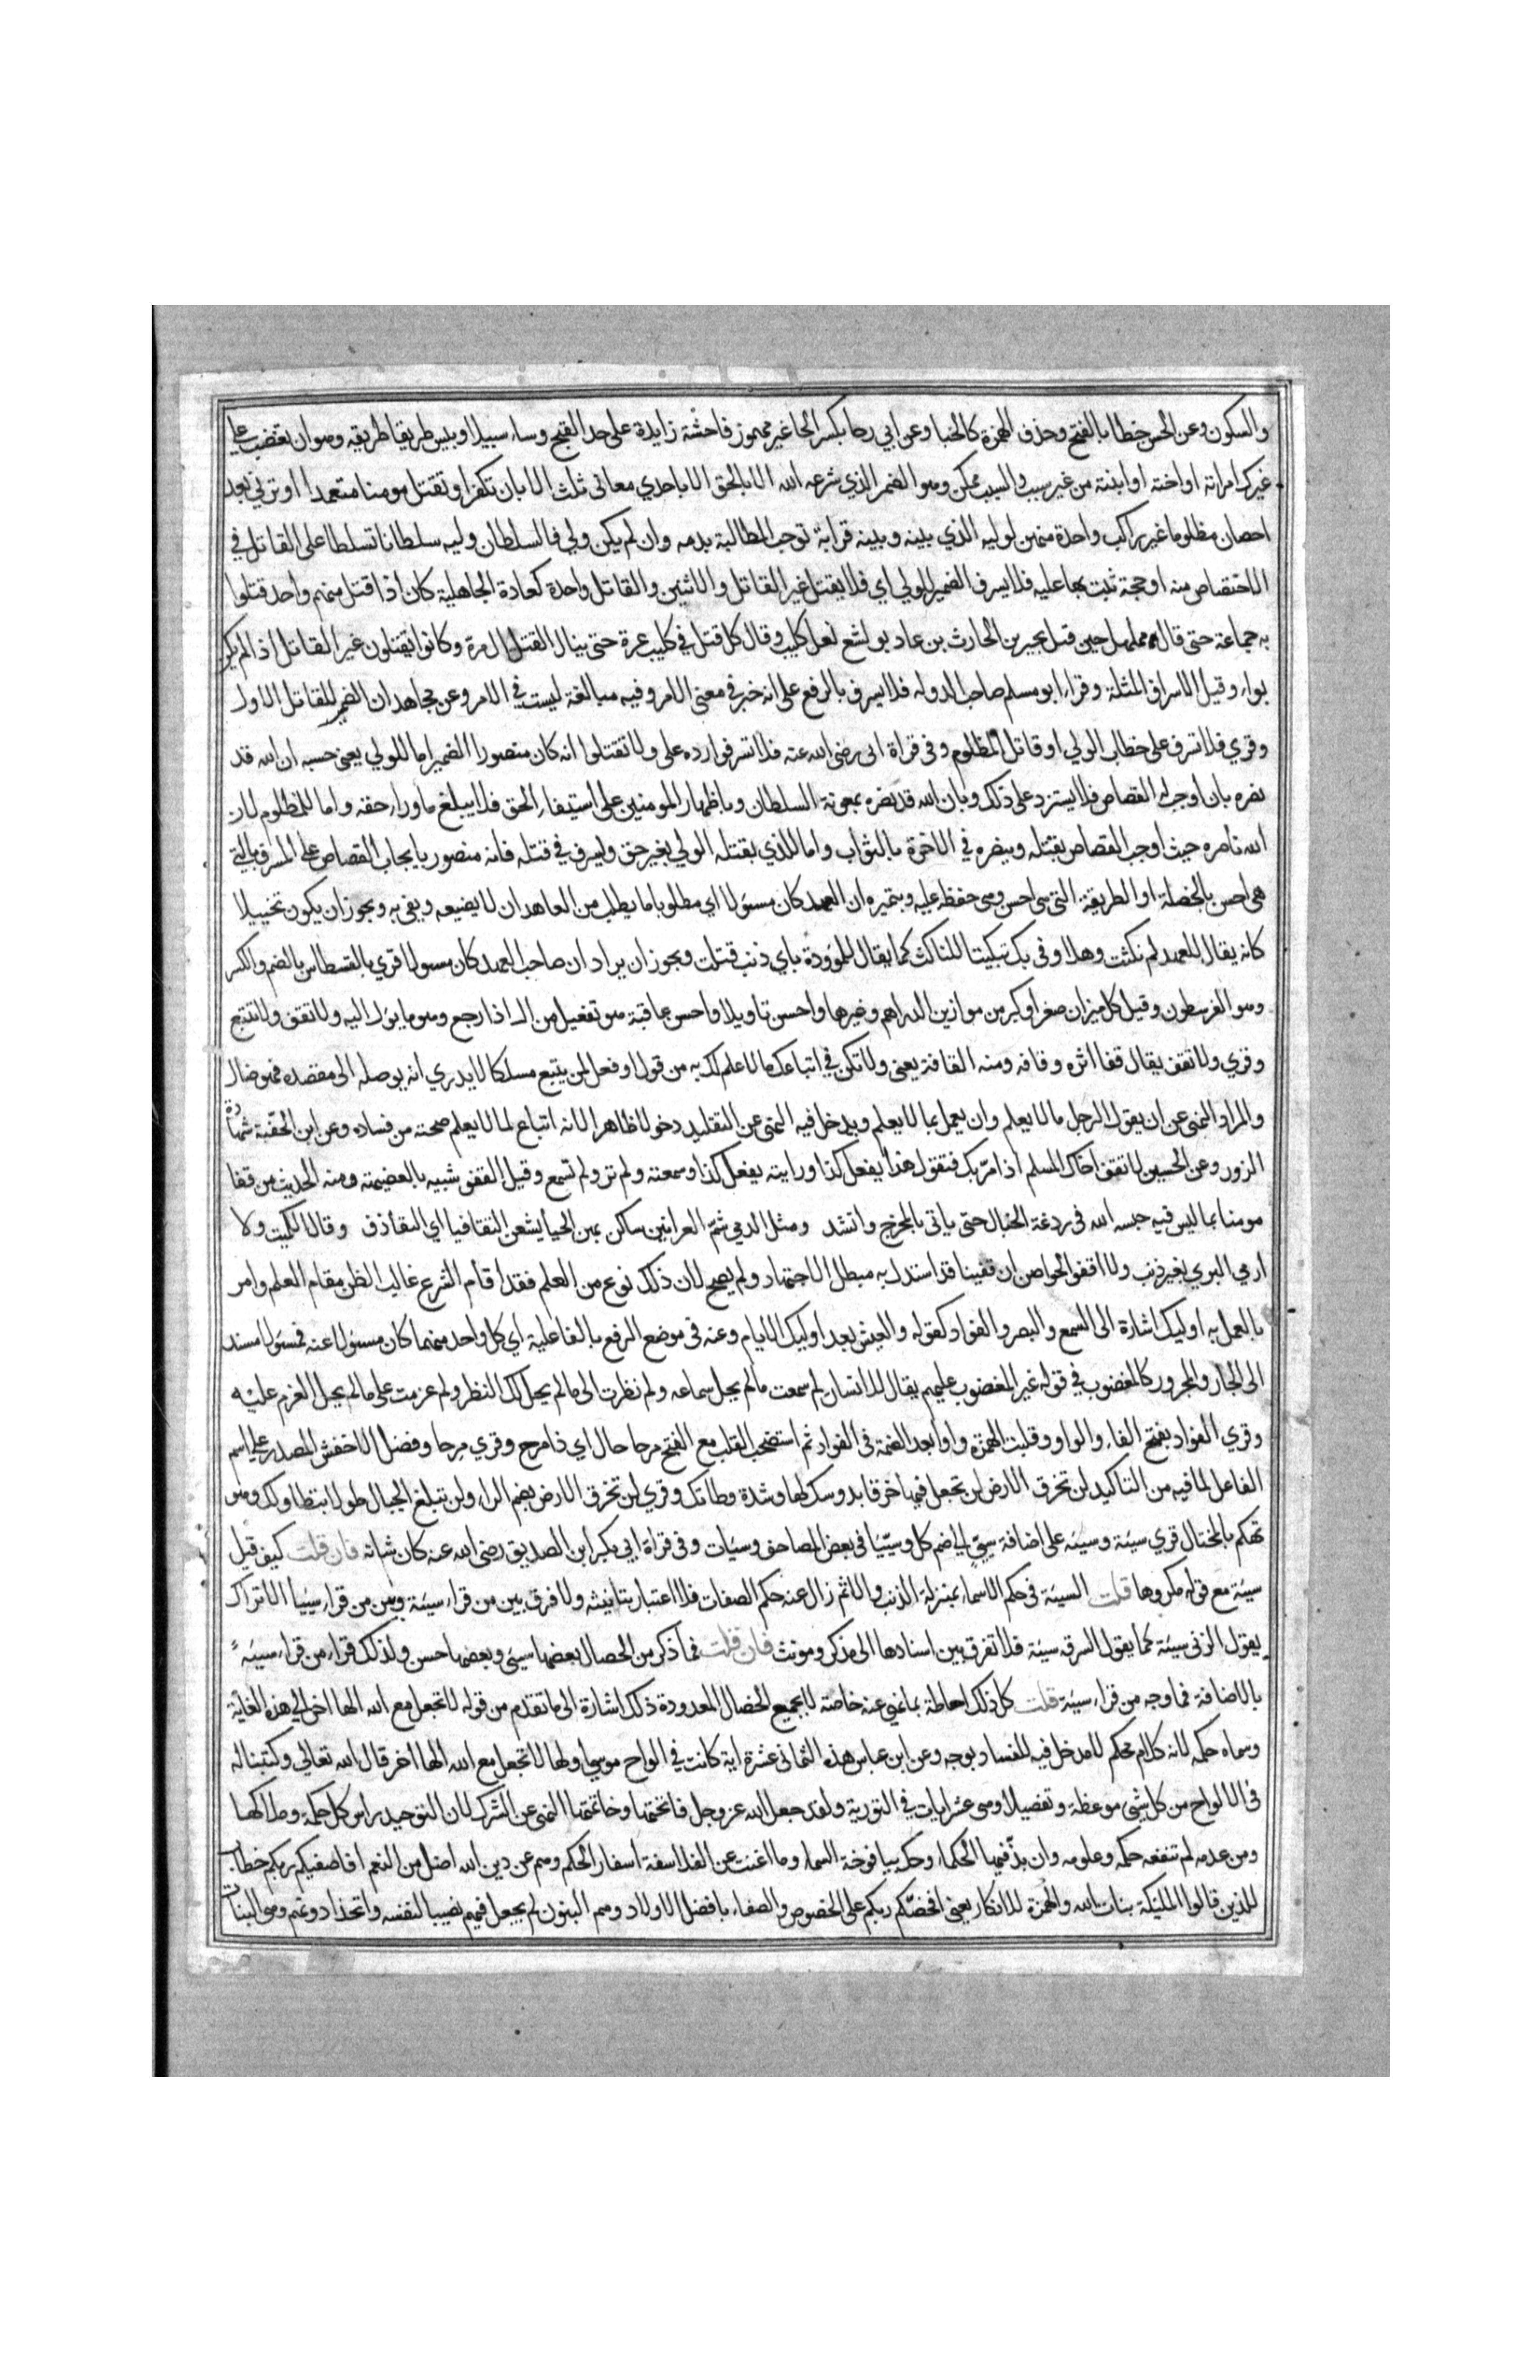 والسكون وعن الحسن خطا بالفتح وحذف الهمزة كالخبا وعن ابي رجا بكسر الخا غير مهموز فاحشة زايدة على حد القبح وساء سبيلا وبيس طريقا طريقه وهو ان تغضب على
غيرك امراته او اخته او ابنته من غير سبب والسبب ممكن وهو الصهر الذي شرعه الله الا بالحق الا باحدي معاني ثلث الا بان تكفر او تقتل مومنا متعمدا او تزني بعد
احصان مظلوما غير راكب واحدة منهن لوليه الذي بينه وبينه قرابة توجب المطالبة بدمه وان لم يكن ولي فالسلطان وليه سلطانا تسلطا على القاتل في
الاختصاص منه او حجة ثبت بها عليه فلا يسرف الضمير للولي اي فلا يقتل غير القاتل والاثنين والقاتل واحدة كعادة الجاهلية كان اذا قتل منهم واحد قتلوا
به جماعة حتى قال مهلهل حين قتل بجير بن الحارث بن عاد بو لشع نعل كليب وقال كل قتل في كليب غرة حتى ينال القتل ال مرة وكانوا يقتلون غير القاتل اذا لم يكن
بواء وقيل الاسراف المثلة وقراء ابو مسلم صاحب الدوله فلا يسرف بالرفع على انه خبر في معنى الامر وفيه مبالغة ليست في الامر وعن مجاهد ان الضمير للقاتل الاول
وقري فلا تسرف على خطاب الولي او قاتل المظلوم وفي قراة ابي رضى الله عنه فلا تسرفوا رده على ولا تقتلوا انه كان منصورا الضمير اما للولي يعنى حسبه ان الله قد
نصره بان اوجب له القصاص فلا يستزد على ذلك وبان الله قد نصره بمعونة السلطان وباظهار المومنين على استيفاء الحق فلا يبلغ ما وراء حقه واما للمظلوم لان
الله ناصره حيث اوجب القصاص بقتله وينصره في الاخرة بالثواب واما للذي يقتله الولي بغير حق ويسرف في قتله فانه منصور بايجاب القصاص على المسرف بالتي
هي احسن بالخصلة او الطريقة التي هي احسن وهي حفظه عليه وبتميره ان العهد كان مسئولا اي مطلوبا ما يطلب من العاهد ان لا يضيعه ويفي به ويجوز ان يكون تخييلا
كانه يقال للعهد لم نكثت وهلا وفى بك تبكيتا للناكث كما يقال للموودة باي ذنب قتلت ويجوز ان يراد ان صاحب العهد كان مسولا قري بالقسطاس بالضم والكسر
وهو القرسطون وقيل كل ميزان صغر او كبر من موازين الدراهم وغيرها واحسن تاويلا واحسن عاقبة هو تفعيل من ال اذا رجع وهو ما يؤل اليه ولا تقف ولا تتبع
وقري ولا تقف يقال قفا اثره وقافه ومنه القافة يعنى ولا تكن في اتباعك ما لا علم لك به من قول او فعل كمن يتبع مسلكا لا يدري انه يوصله الى مقصده فهو ضال
والمراد النهي عن ان يقول الرجل ما لا يعلم وان يعمل بما لا يعلم ويدخل فيه النهي عن التقليد دخولا ظاهرا لانه اتباع لما لا يعلم صحته من فساده وعن ابن الحقبة شهادة
الزور وعن الحسين لا تقف اخاك المسلم اذا مر بك فتقول هذا يفعل كذا ورايته يفعل كذا وسمعته ولم تر ولم تسمع وقيل القفو شبيه بالعضيهة ومنه الحديث من قفا
مومنا بما ليس فيه حبسه الله في ردغة الخبال حتى ياتي بالمخرج وانشد ومثل الدمي شم العرانين ساكن بهن الحيا لا يشعن التقافيا اي التقاذف وقال الكميت ولا
ارمي البري بغير ذنب ولا اقفو الحواصن ان قفينا قد استدل به مبطل الاجتهاد ولم يصح لان ذلك نوع من العلم فقد اقام الشرع غالب الظن مقام العلم وامر
بالعمل به اوليك اشارة الى السمع والبصر والفواد كقوله والعيش بعد اوليك الايام وعنه في موضع الرفع بالفاعلية اي كل واحد منهما كان مسئولا عنه فمسئولا مسند
الى الجار والمجرور كالمغضوب في قوله غير المغضوب عليهم يقال للانسان لم سمعت ما لم يحل سماعه ولم نظرت الى ما لم يحل لك النظر ولم عزمت على ما لم يحل العزم عليه
وقري الفواد بفتح الفاء والواو وقلبت الهمزة واوا بعد الضمة في الفواد ثم استصحب القلب مع الفتح مرحا حال اي ذا مرح وقري مرحا وفضل الاخفش المصدر على اسم
الفاعل لما فيه من التاكيد لن تخرق الارض لن تجعل فيها خرقا بدوسك لها وشدة وطاتك وقري لن تخرق الارض بضم الراء ولن تبلغ الجبال طولا بتطاولك وهو
تهكم بالمختال قري سيئة وسيئه على اضافة سيئ الى ضم كل وسيّئا في بعض المصاحف وسيات وفي قراة ابي بكر ابن الصديق رضى الله عنه كان شانه فان قلت كيف قيل
سيئة مع قوله مكروها قلت السيئة في حكم الاسماء بمنزلة الذنب والاثم زال عنه حكم الصفات فلا اعتبار بتانيثه ولا فرق بين من قراء سيئة وبين من قراء سيئا الا تراك
يقول الزنى سيئة كما يقول السرقه سيئة فلا تفرق بين اسنادها الى مذكر ومونث فان قلت فما ذكر من الخصال بعضها سيئ وبعضها حسن ولذلك قراء من قراء سيئه
بالاضافة فما وجه من قراء سيئة قلت كل ذلك احاطة بما نهي عنه خاصة لا بجميع الخصال المعدودة ذلك اشارة الى ما تقدم من قوله لا تجعل مع الله الها اخر الى هذه الغاية
وسماه حكمة لانه كلام محكم لا مدخل فيه للفساد بوجه وعن ابن عباس هذه الثماني عشرة اية كانت في الواح موسى اولها لا تجعل مع الله الها اخر قال الله تعالى وكتبنا له
في الالواح من كل شي موعظة وتفصيلا وهي عشر ايات في التورية ولقد جعل الله عز وجل فاتحتها وخاتمتها النهي عن الشرك لان التوحيد راس كل حكمة وملاكها
ومن عدمه لم تنفعه حكمه وعلومه وان بذ فيها الحكماء وحك بيافوخة السماء وما اغنت عن الفلاسفة اسفار الحكم وهم عن دين الله اضل من النعم افاصفيكم ربكم خطاب
للذين قالوا المليكة بنات الله والهمزة للانكار يعنى افخصكم ربكم على الخصوص والصفاء بافضل الاولاد وهم البنون لم يجعل فيهم نصيبا لنفسه واتخذ ادونهم وهي البنات